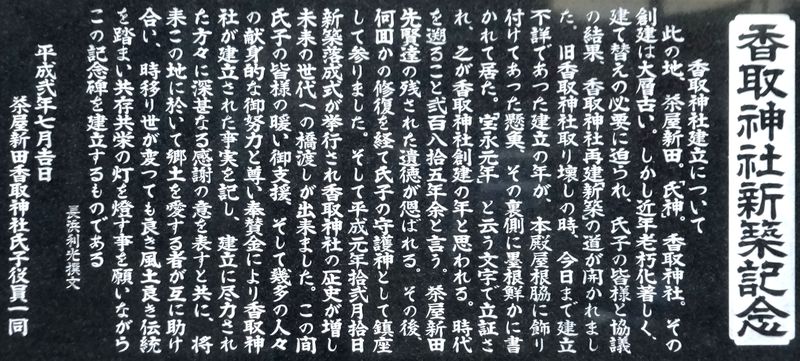 香取神社新築記念
香取神社建立について
此の地、茶屋新田。氏神。香取神社。その
創建は大層古い。しかし近年老朽化著しく、
建て替えの必要に迫られ、氏子の皆様と協議
の結果、香取神社再建新築の道が開かれまし
た。旧香取神社取り壊しの時、今日まで建立
不詳であつた建立の年が、本殿屋根脇に飾り
付けてあつた懸魚、その裏側に墨根鮮かに書
かれて居た。「宝永元年」と云う文字で立証さ
れ、之が香取神社創建の年と思われる。時代
を遡ること弐百八拾五年余と言う。茶屋新田
先賢達の残された遺徳が偲ばれる。その後、
何回かの修復を経て氏子の守護神として鎮座
して参りました。そして平成元年拾弐月拾日
新築落成式が挙行され香取神社の歴史が増し
未来の世代への橋渡しが出来ました。この間
氏子の皆様の暖い御支援、そして幾多の人々
の献身的な御努力と尊い奉賛金により香取神
社が建立された事実を記し、建立に尽力され
た方々に深甚なる感謝の意を表すと共に、将
来この地に於いて郷土を愛する者が互に助け
合い、時移り世が変つても良き風土良き伝統
を踏まい共存共栄の灯を燈す事を願いながら
この記念碑を建立するものである
長浜利光撰文
平成弐年七月吉日
茶屋新田香取神社氏子役員一同